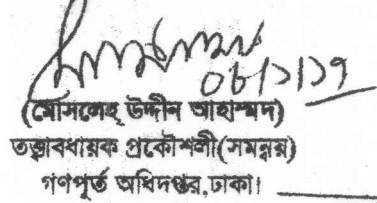 ০৮/১/১৭
(মোসলেহ্ উদ্দীন আহাম্মদ)
তত্ত্বাবধায়ক প্রকৌশলী(সমন্বয়)
গণপূর্ত অধিদপ্তর,ঢাকা।